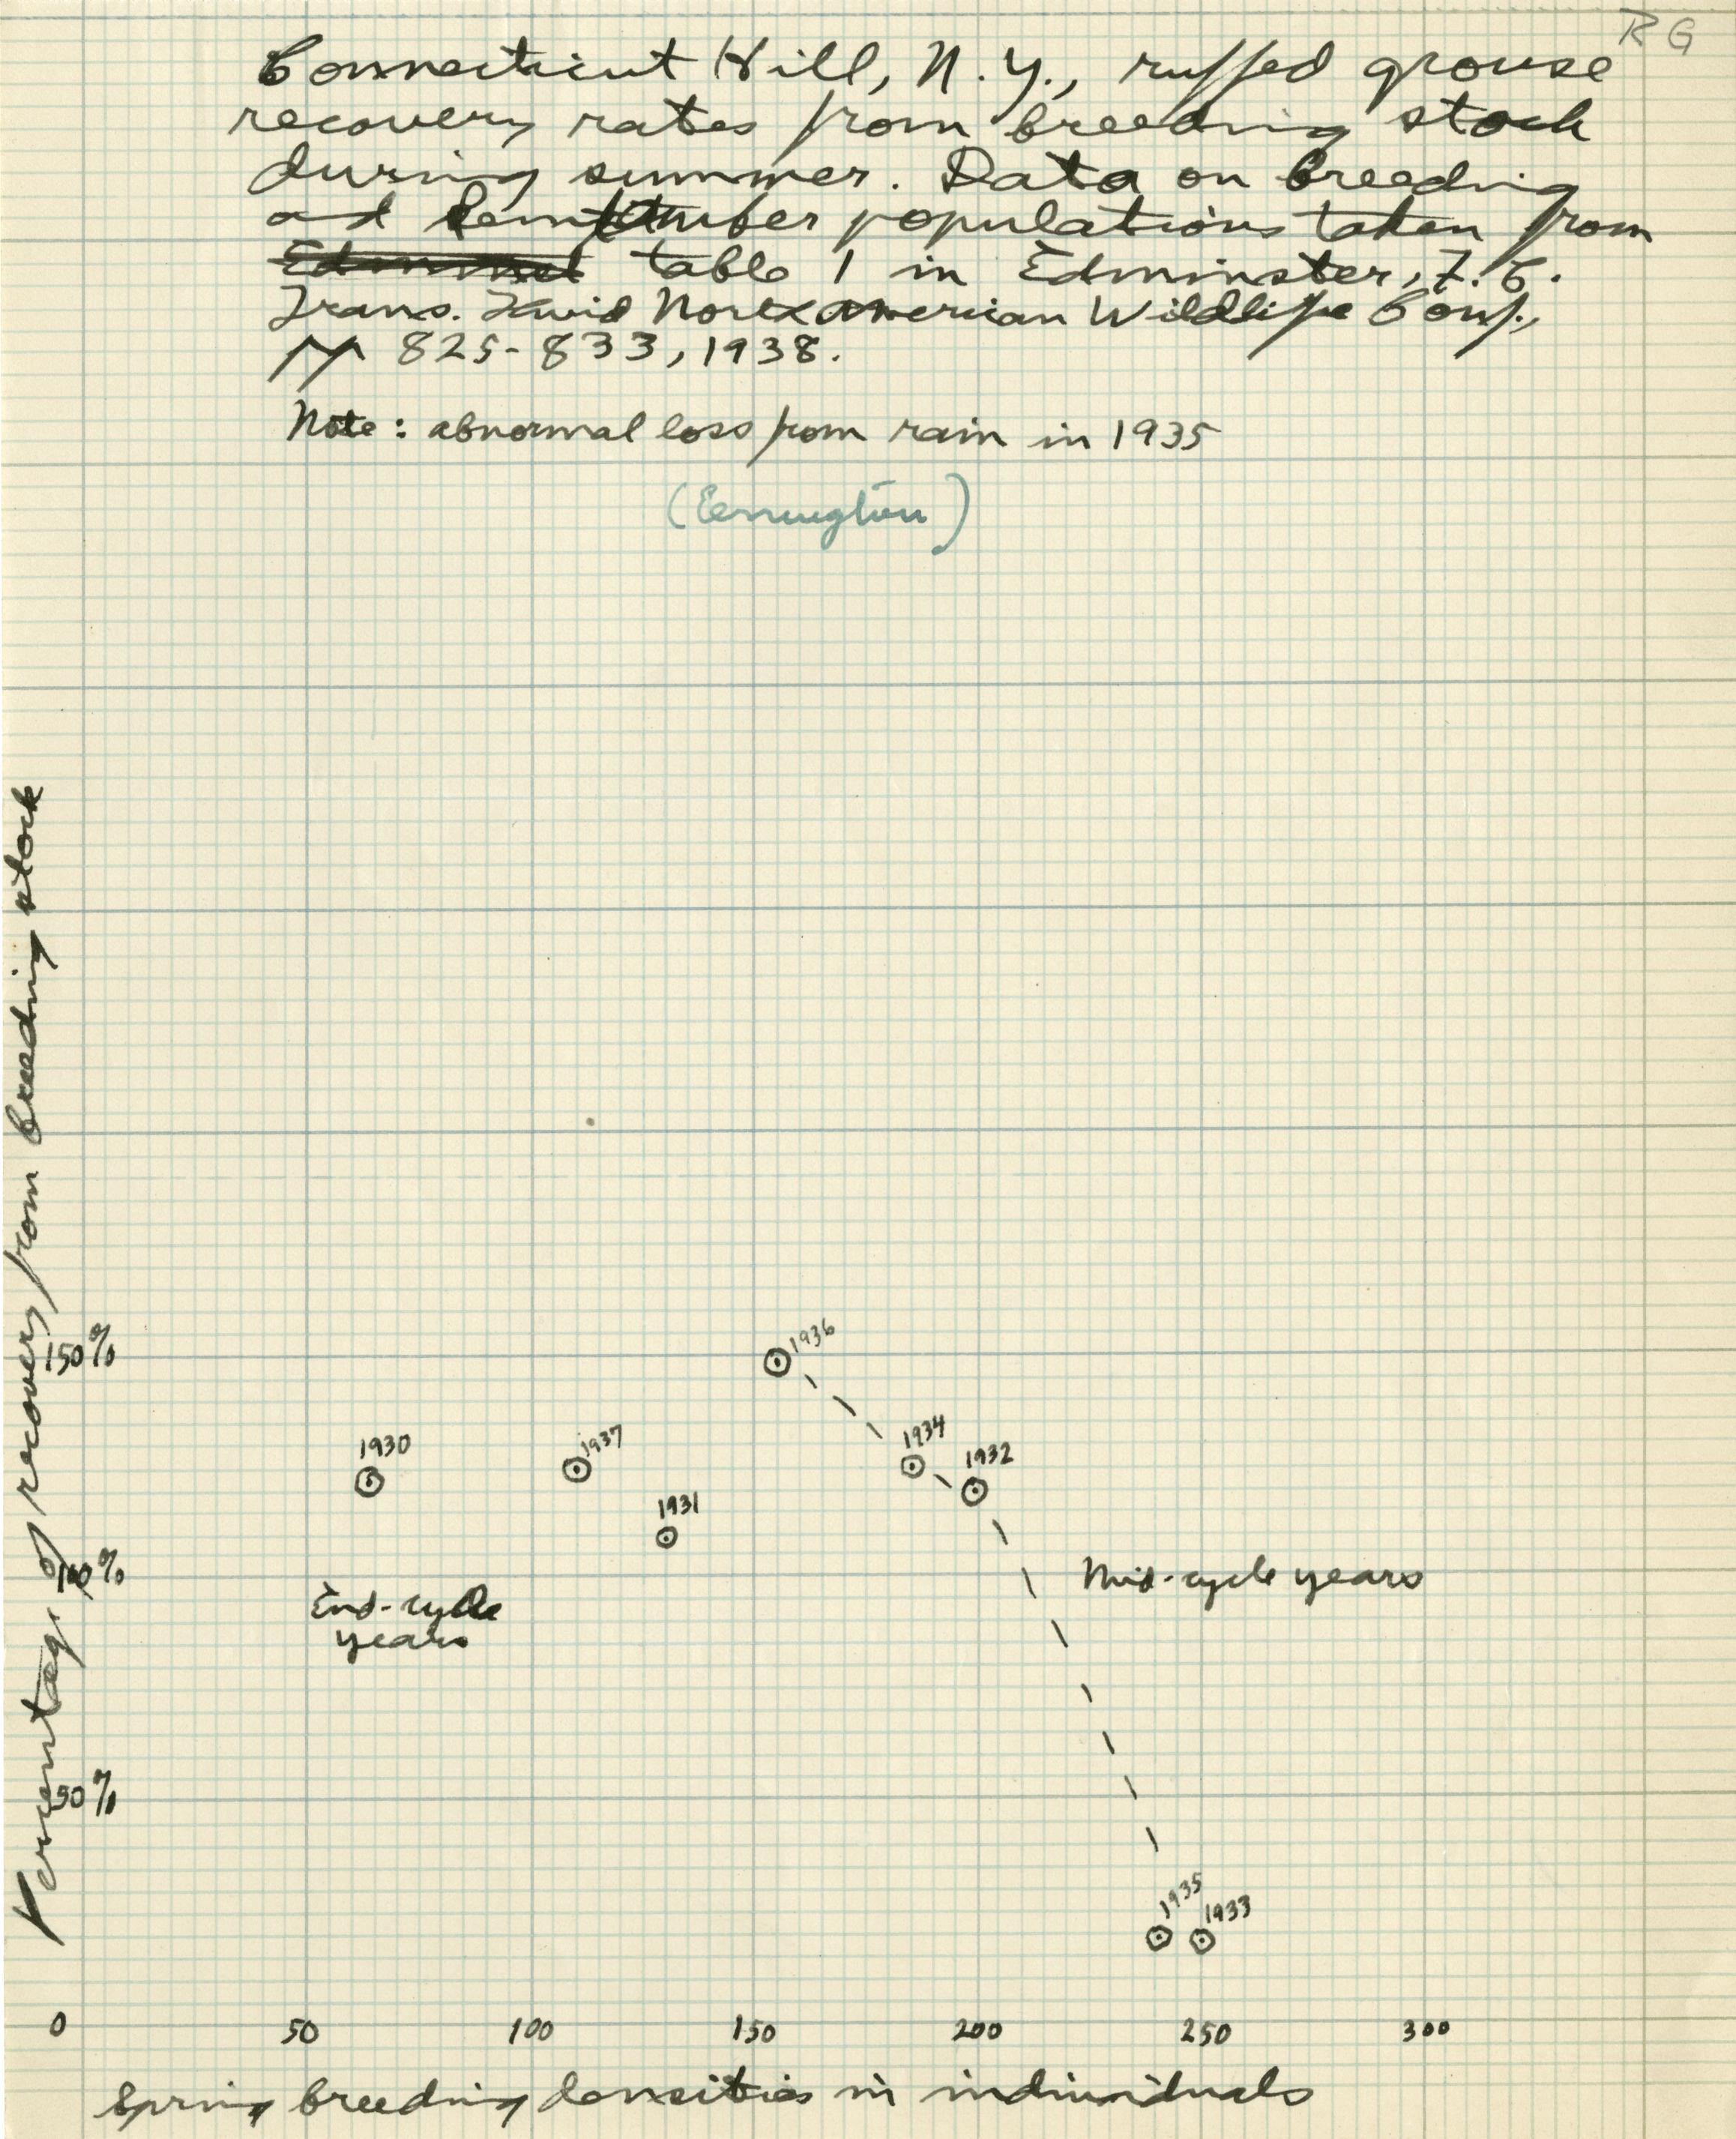 RG
Connecticut Hill, N.Y., ruffed grouse
recovery rates from breeding stock
during summer. Data on breeding
and September populations taken from
table 1 in Edminster, F. C.
Trans. Third North American Wildlife Conf.,
pp 825-833, 1938.
Note: abnormal loss from rain in 1935
(Errington)
Percentage of recovery from breeding stock
150%
100%
50%
0
1936
1930
1937
1934
1932
1931
End-cycle
years
Mid-cycle years
1935
1933
50 100 150 200 250 300
Spring breeding densities in individuals